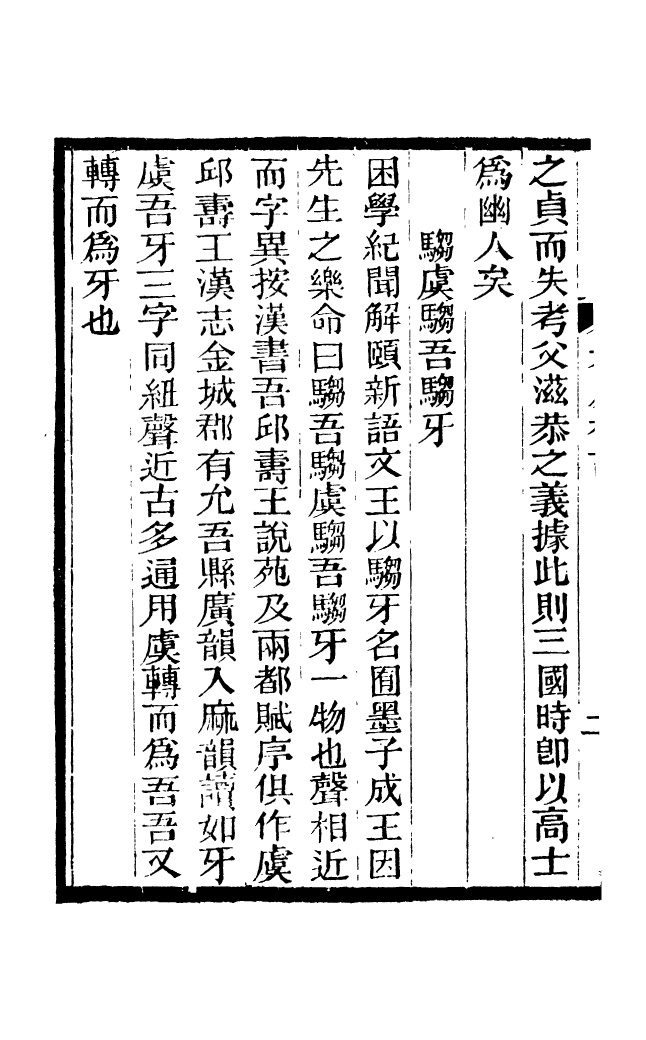 之貞而失考父滋恭之義據此則三國時卽以高士
爲幽人矣
騶虞騶吾騶牙
困學紀聞解頤新語文王以騶牙名囿墨子成王因
先生之樂命曰騶吾騶虞騶吾騶牙一物也聲相近
而字異按漢書吾邱壽王說苑及兩都賦序俱作虞
邱壽王漢志金城郡有允吾縣廣韻入麻韻讀如牙
虞吾牙三字同紐聲近古多通用虞轉而爲吾吾又
轉而爲牙也
二